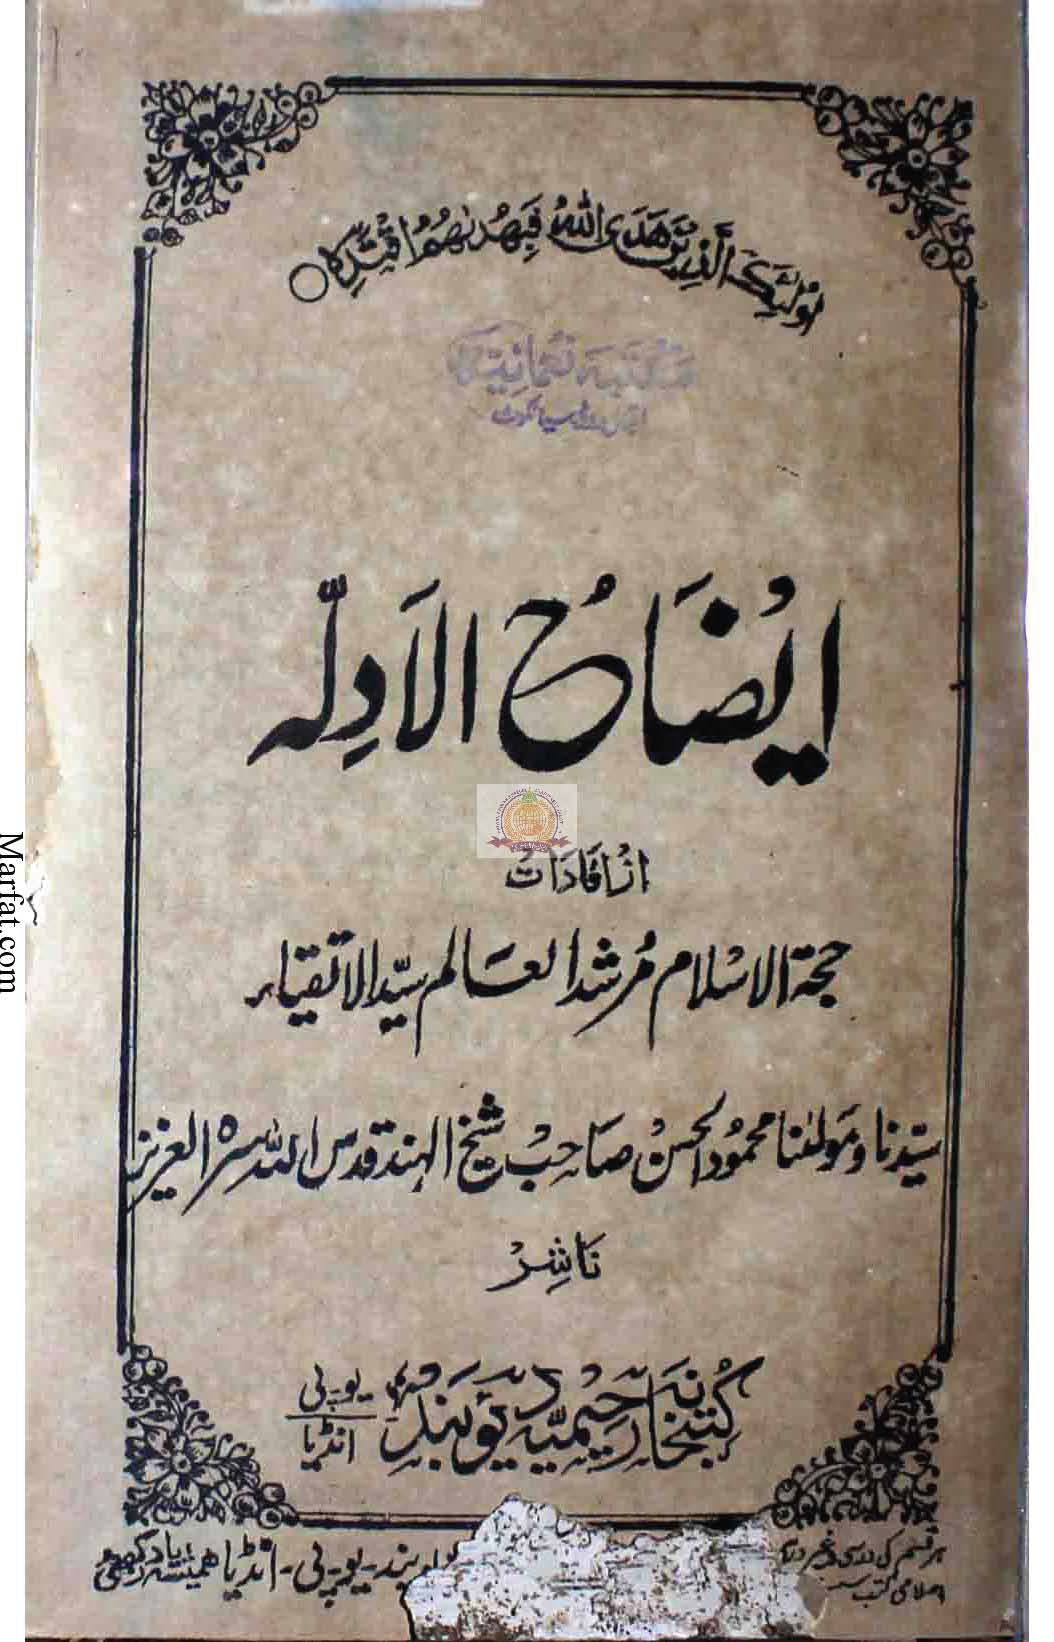 اُولٰٓئِکَ الَّذِیْنَ هَدَی اللّٰهُ فَبِهُدٰىهُمُ اقْتَدِهْ
مکتبہ نعمانیہ
اقبال روڈ سیالکوٹ
اِیْضَاحُ الاَدِلّہ
از افادات
حجۃ الاسلام مُرشد العالم سیّد الاتقیاء
سیّدنا و مولٰنا محمود الحسن صاحب شیخ الہند قدس اللہ سرہ العزیز
ناشر
کتبخانہ رحیمیہ دیوبند یو۔پی انڈیا
ہر قسم کی درسی و غیر درسی
اسلامی کتب
بند۔ یو۔پی۔ انڈیا ہمیشہ یاد رکھئے
Marfat.com